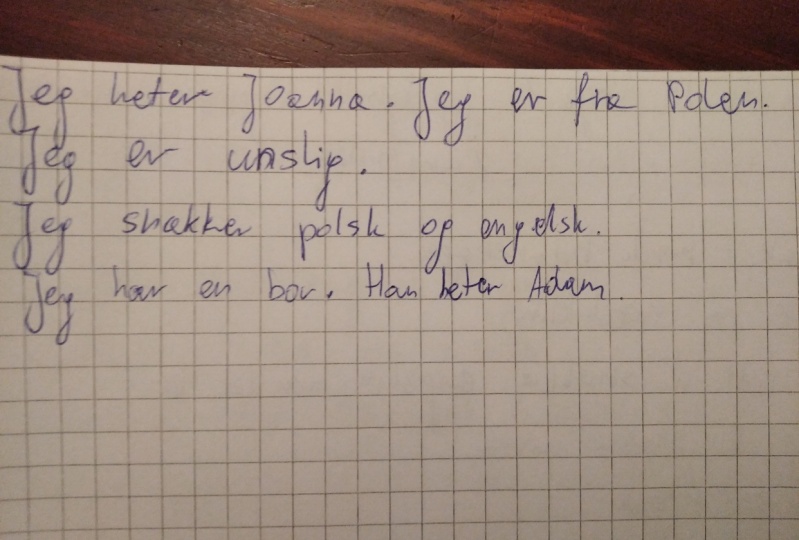 Jeg heter Joanna. Jeg er fra Polen.
Jeg er unslig.
Jeg snakker polsk og engelsk.
Jeg har en bor. Han heter Adam.